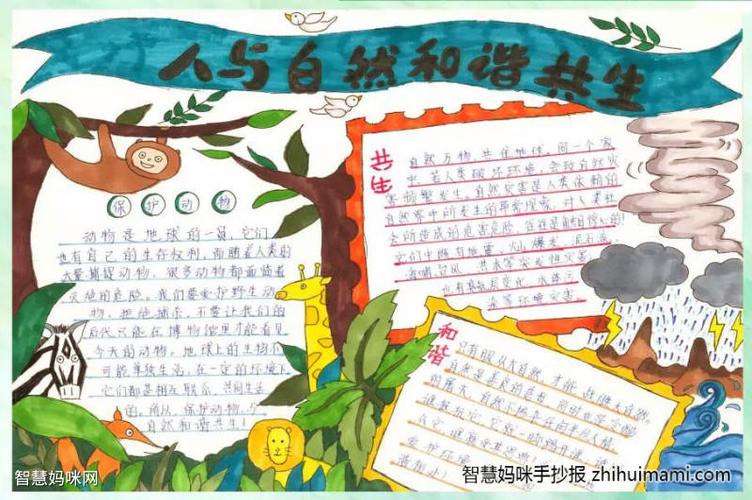 人与自然和谐共生
保护动物
动物是地球的一员,它们
也有自己的生存权利,而随着人类的
大量捕捉动物,很多动物都面临着
灭绝的危险。我们要爱护野生动
物,拒绝捕杀,不要让我们的
后代只能在博物馆里才能看见
今天的动物。地球上的生物不
可能单独生活,在一定的环境下
它们都是相互联系、共同生活
的。所以,保护动物,
自然和谐共生!
共生
自然万物,共住地球,同一个家
中,若人类破坏环境,会致自然灾
害频繁发生,自然灾害是人类依赖的
自然界中所发生的异常现象,对人类社
会所造成的危害
它们中既有地震、火山爆发、泥石流、
海啸、台风、洪水等突发性灾害
也有
等环境灾害
和谐
只有服从大自然,才能战胜大自然。
爱护环境
智慧妈咪网
智慧妈咪手抄报 zhihuimami.com